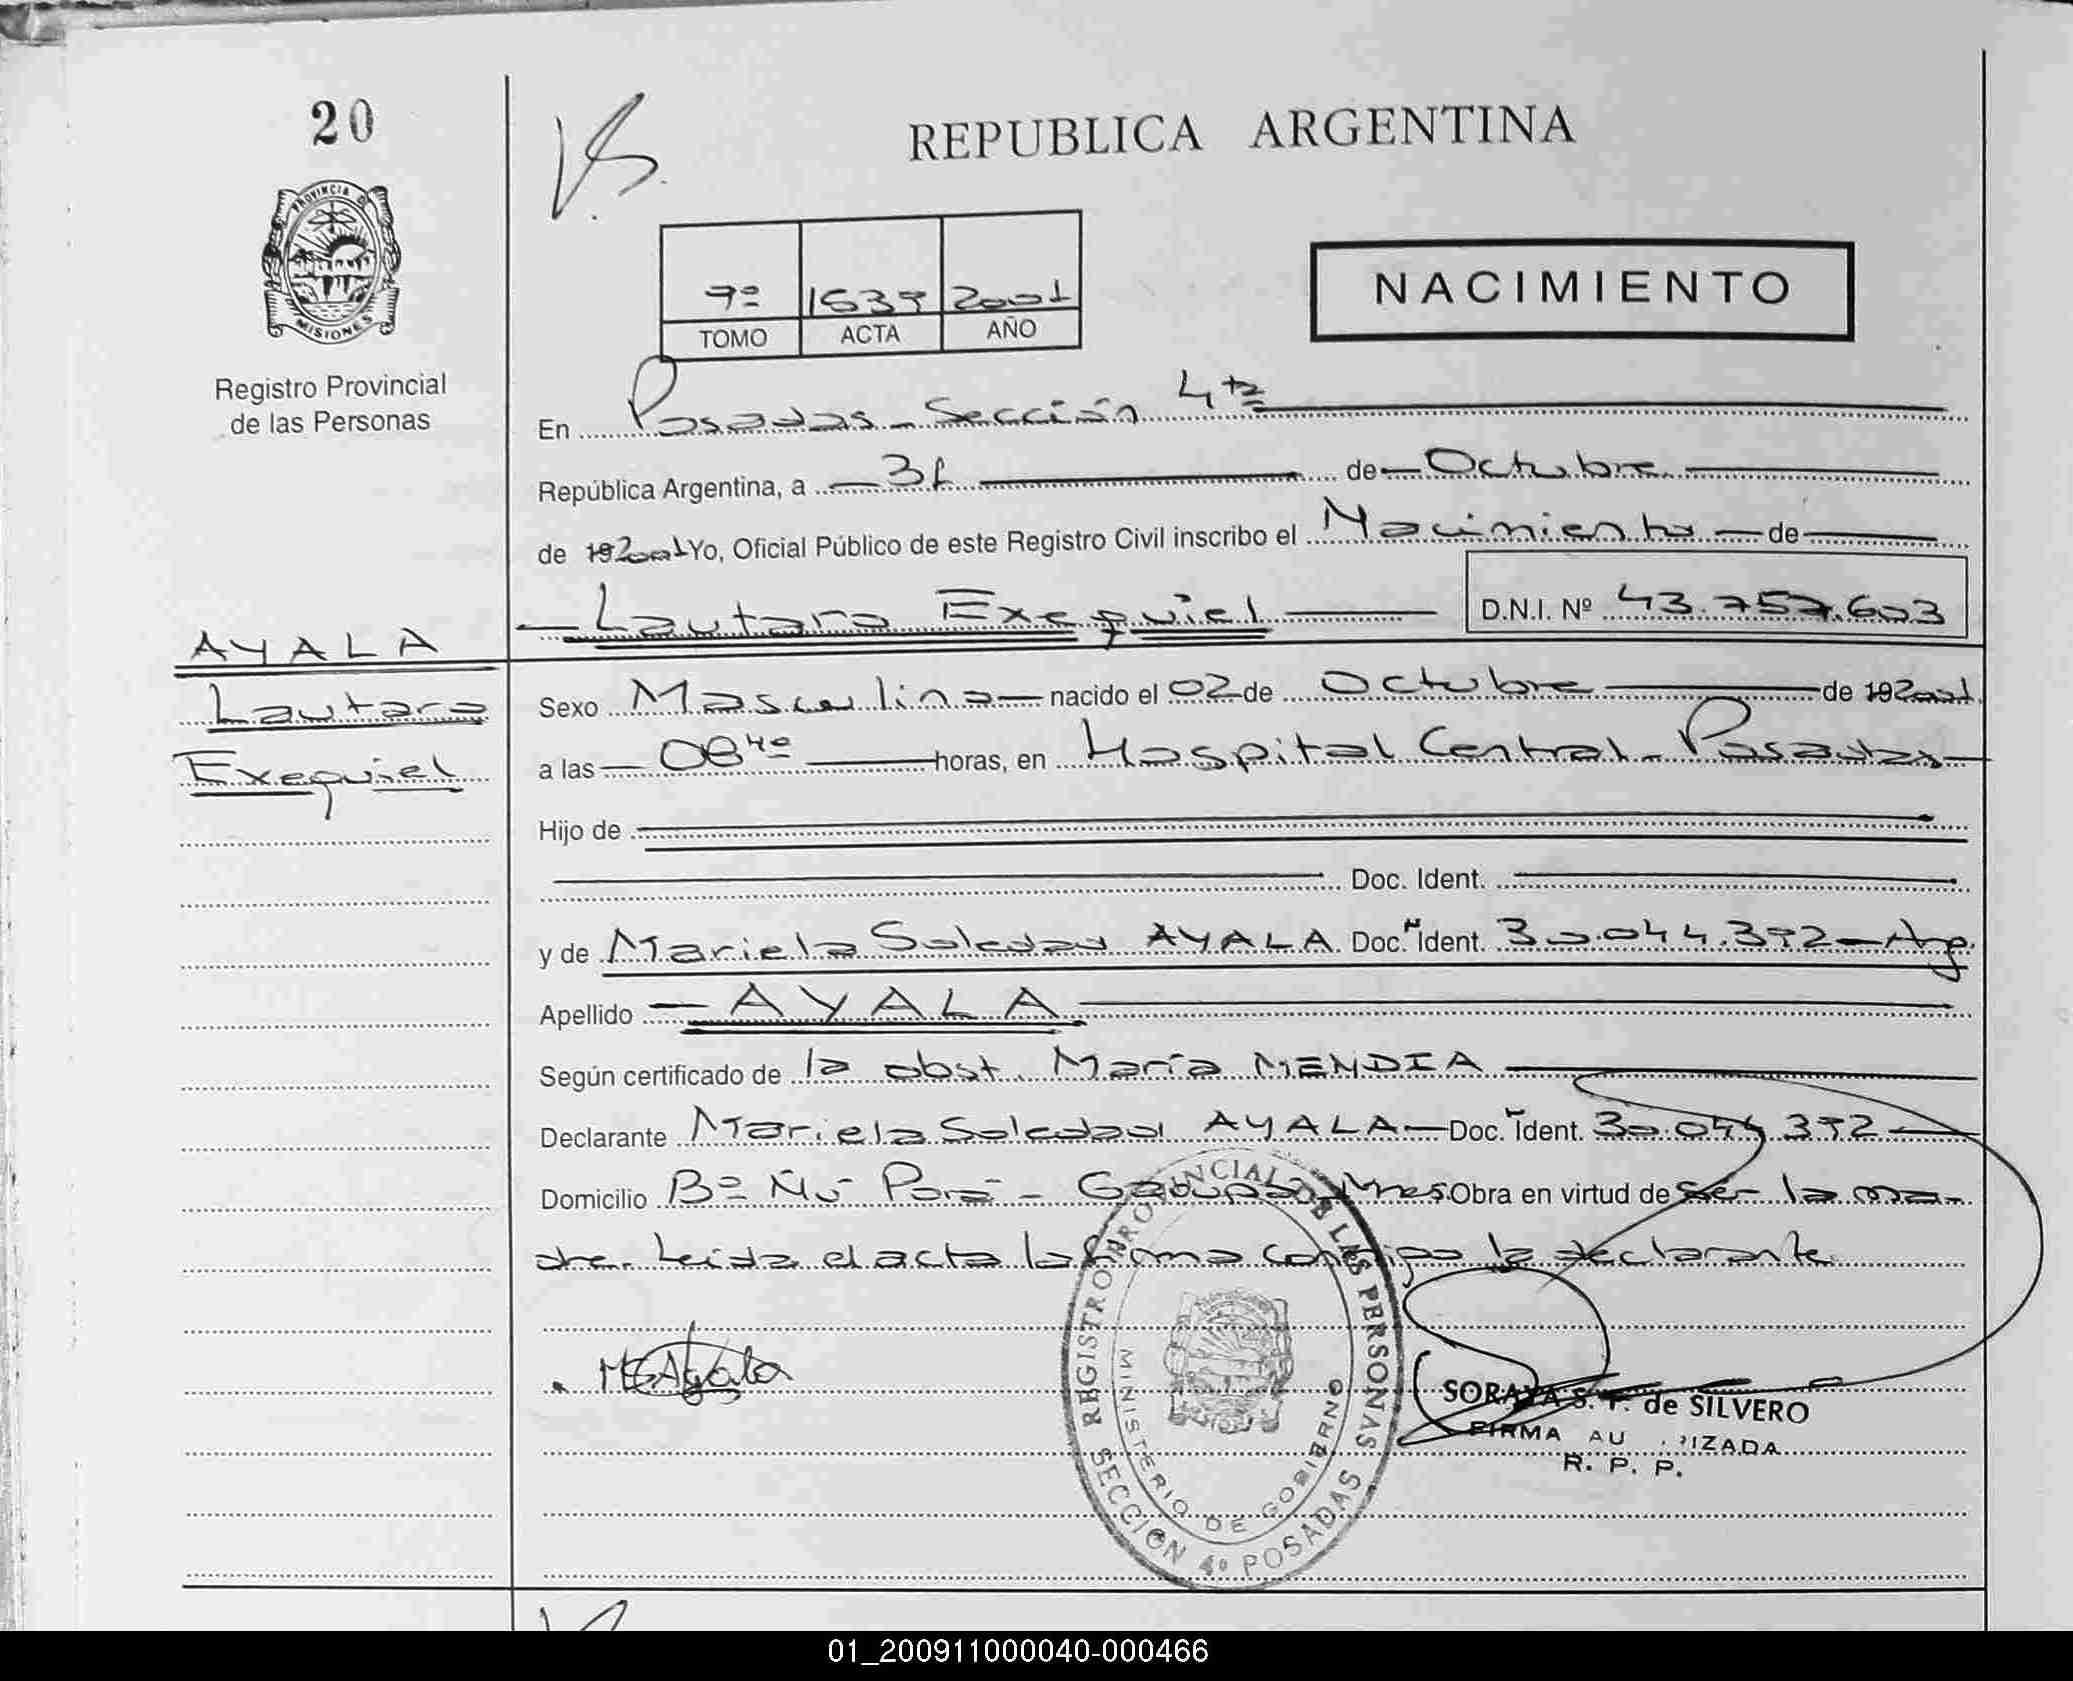 20
REPUBLICA ARGENTINA
PROVINCIA DE
MISIONES
Registro Provincial
de las Personas
NACIMIENTO
7º 1637 2001
TOMO ACTA AÑO
En Posadas - Sección 4ta
República Argentina, a 31 de Octubre
de 192001 Yo, Oficial Público de este Registro Civil inscribo el Nacimiento de
Lautaro Exequiel D.N.I. Nº 43.757.603
AYALA
Lautaro
Exequiel
Sexo Masculino nacido el 02 de Octubre de 192001
a las 08 40 horas, en Hospital Central - Posadas
Hijo de
Doc. Ident.
y de Mariela Soledad AYALA Doc. Ident. 30.044.392 - Arg.
Apellido AYALA
Según certificado de la obst. María MENDIA
Declarante Mariela Soledad AYALA Doc. Ident. 30.044.392
Domicilio Bº Ñu Porá - Garupá - Mnes Obra en virtud de ser la ma-
dre. Leída el acta la firma conmigo la declarante.
MSAyala
REGISTRO PROVINCIAL DE LAS PERSONAS
MINISTERIO DE GOBIERNO
SECCION 4º POSADAS
SORAYA S. F. de SILVERO
FIRMA AU IZADA
R. P. P.
01_200911000040-000466